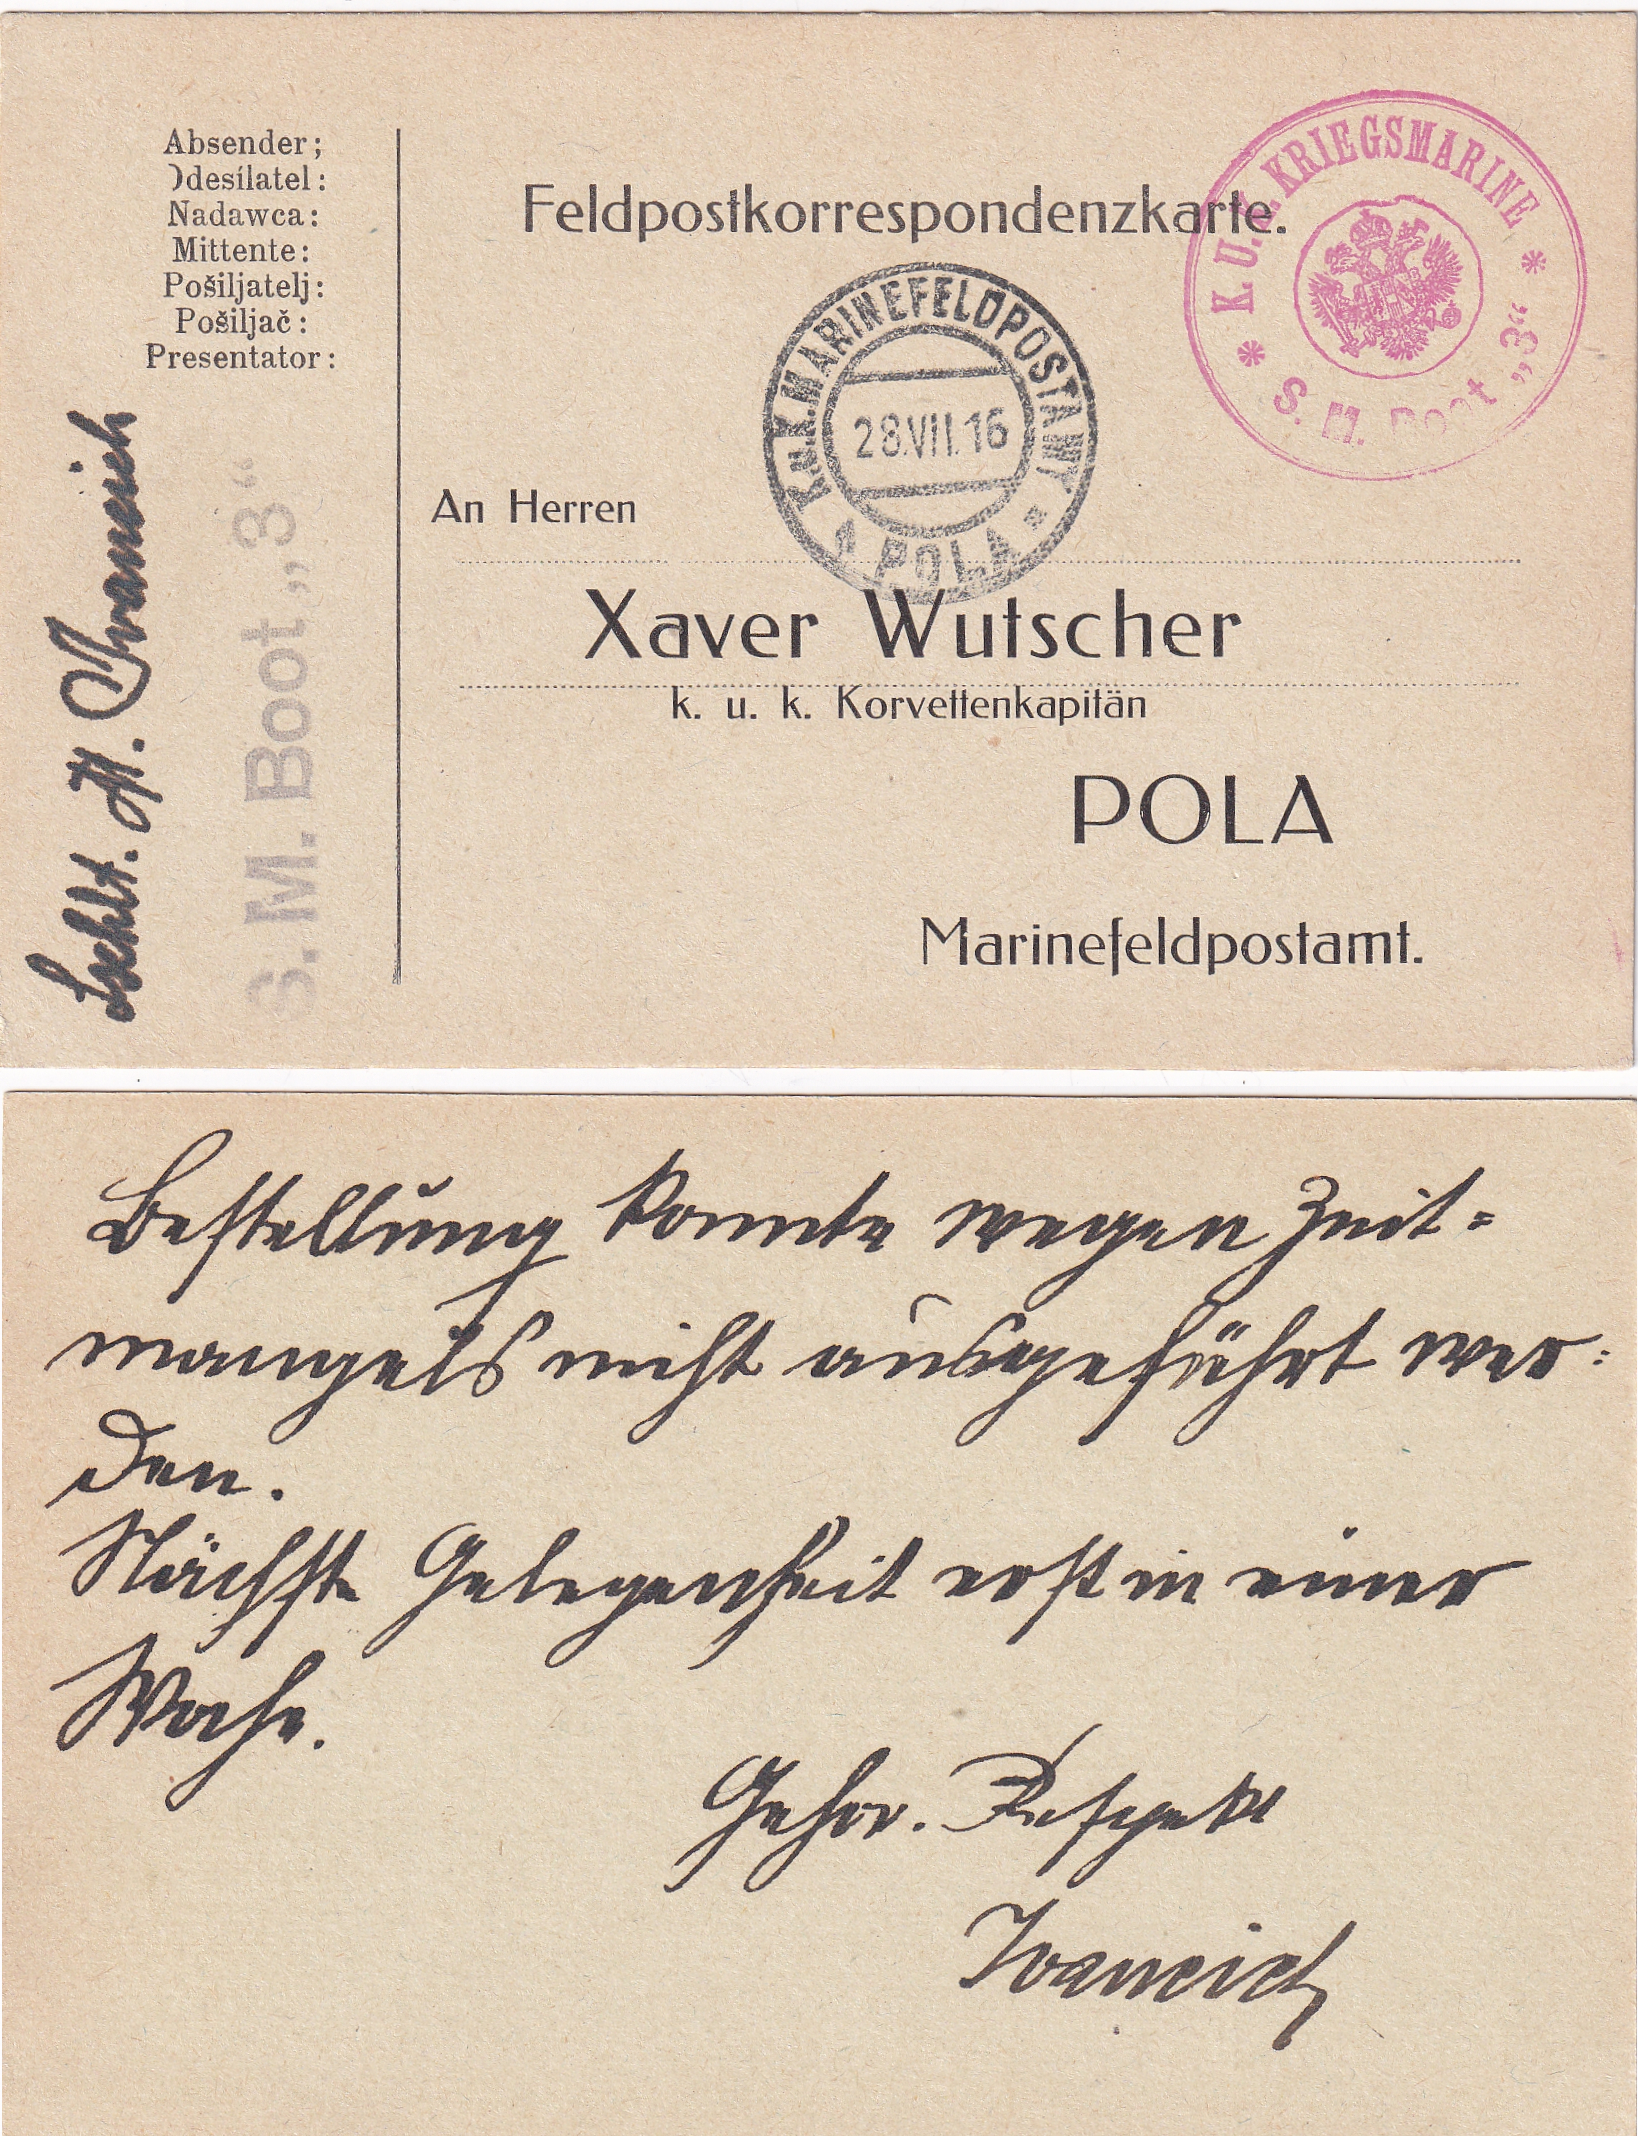 Absender;
Odesílatel:
Nadawca:
Mittente:
Pošiljatelj:
Pošiljač:
Presentator:
Lschlt. A. Ivancich
S. M. Boot „3“
Feldpostkorrespondenzkarte.
K. U. K. KRIEGSMARINE
S. M. Boot „3“
K.u.K. MARINEFELDPOSTAMT
28.VII.16
POLA
An Herren
Xaver Wutscher
k. u. k. Korvettenkapitän
POLA
Marinefeldpostamt.
Bestellung konnte wegen Zeit=
mangels nicht ausgeführt wer=
den.
Nächste Gelegenheit erst in einer
Woche.
Gehor. Respekt
Ivancich